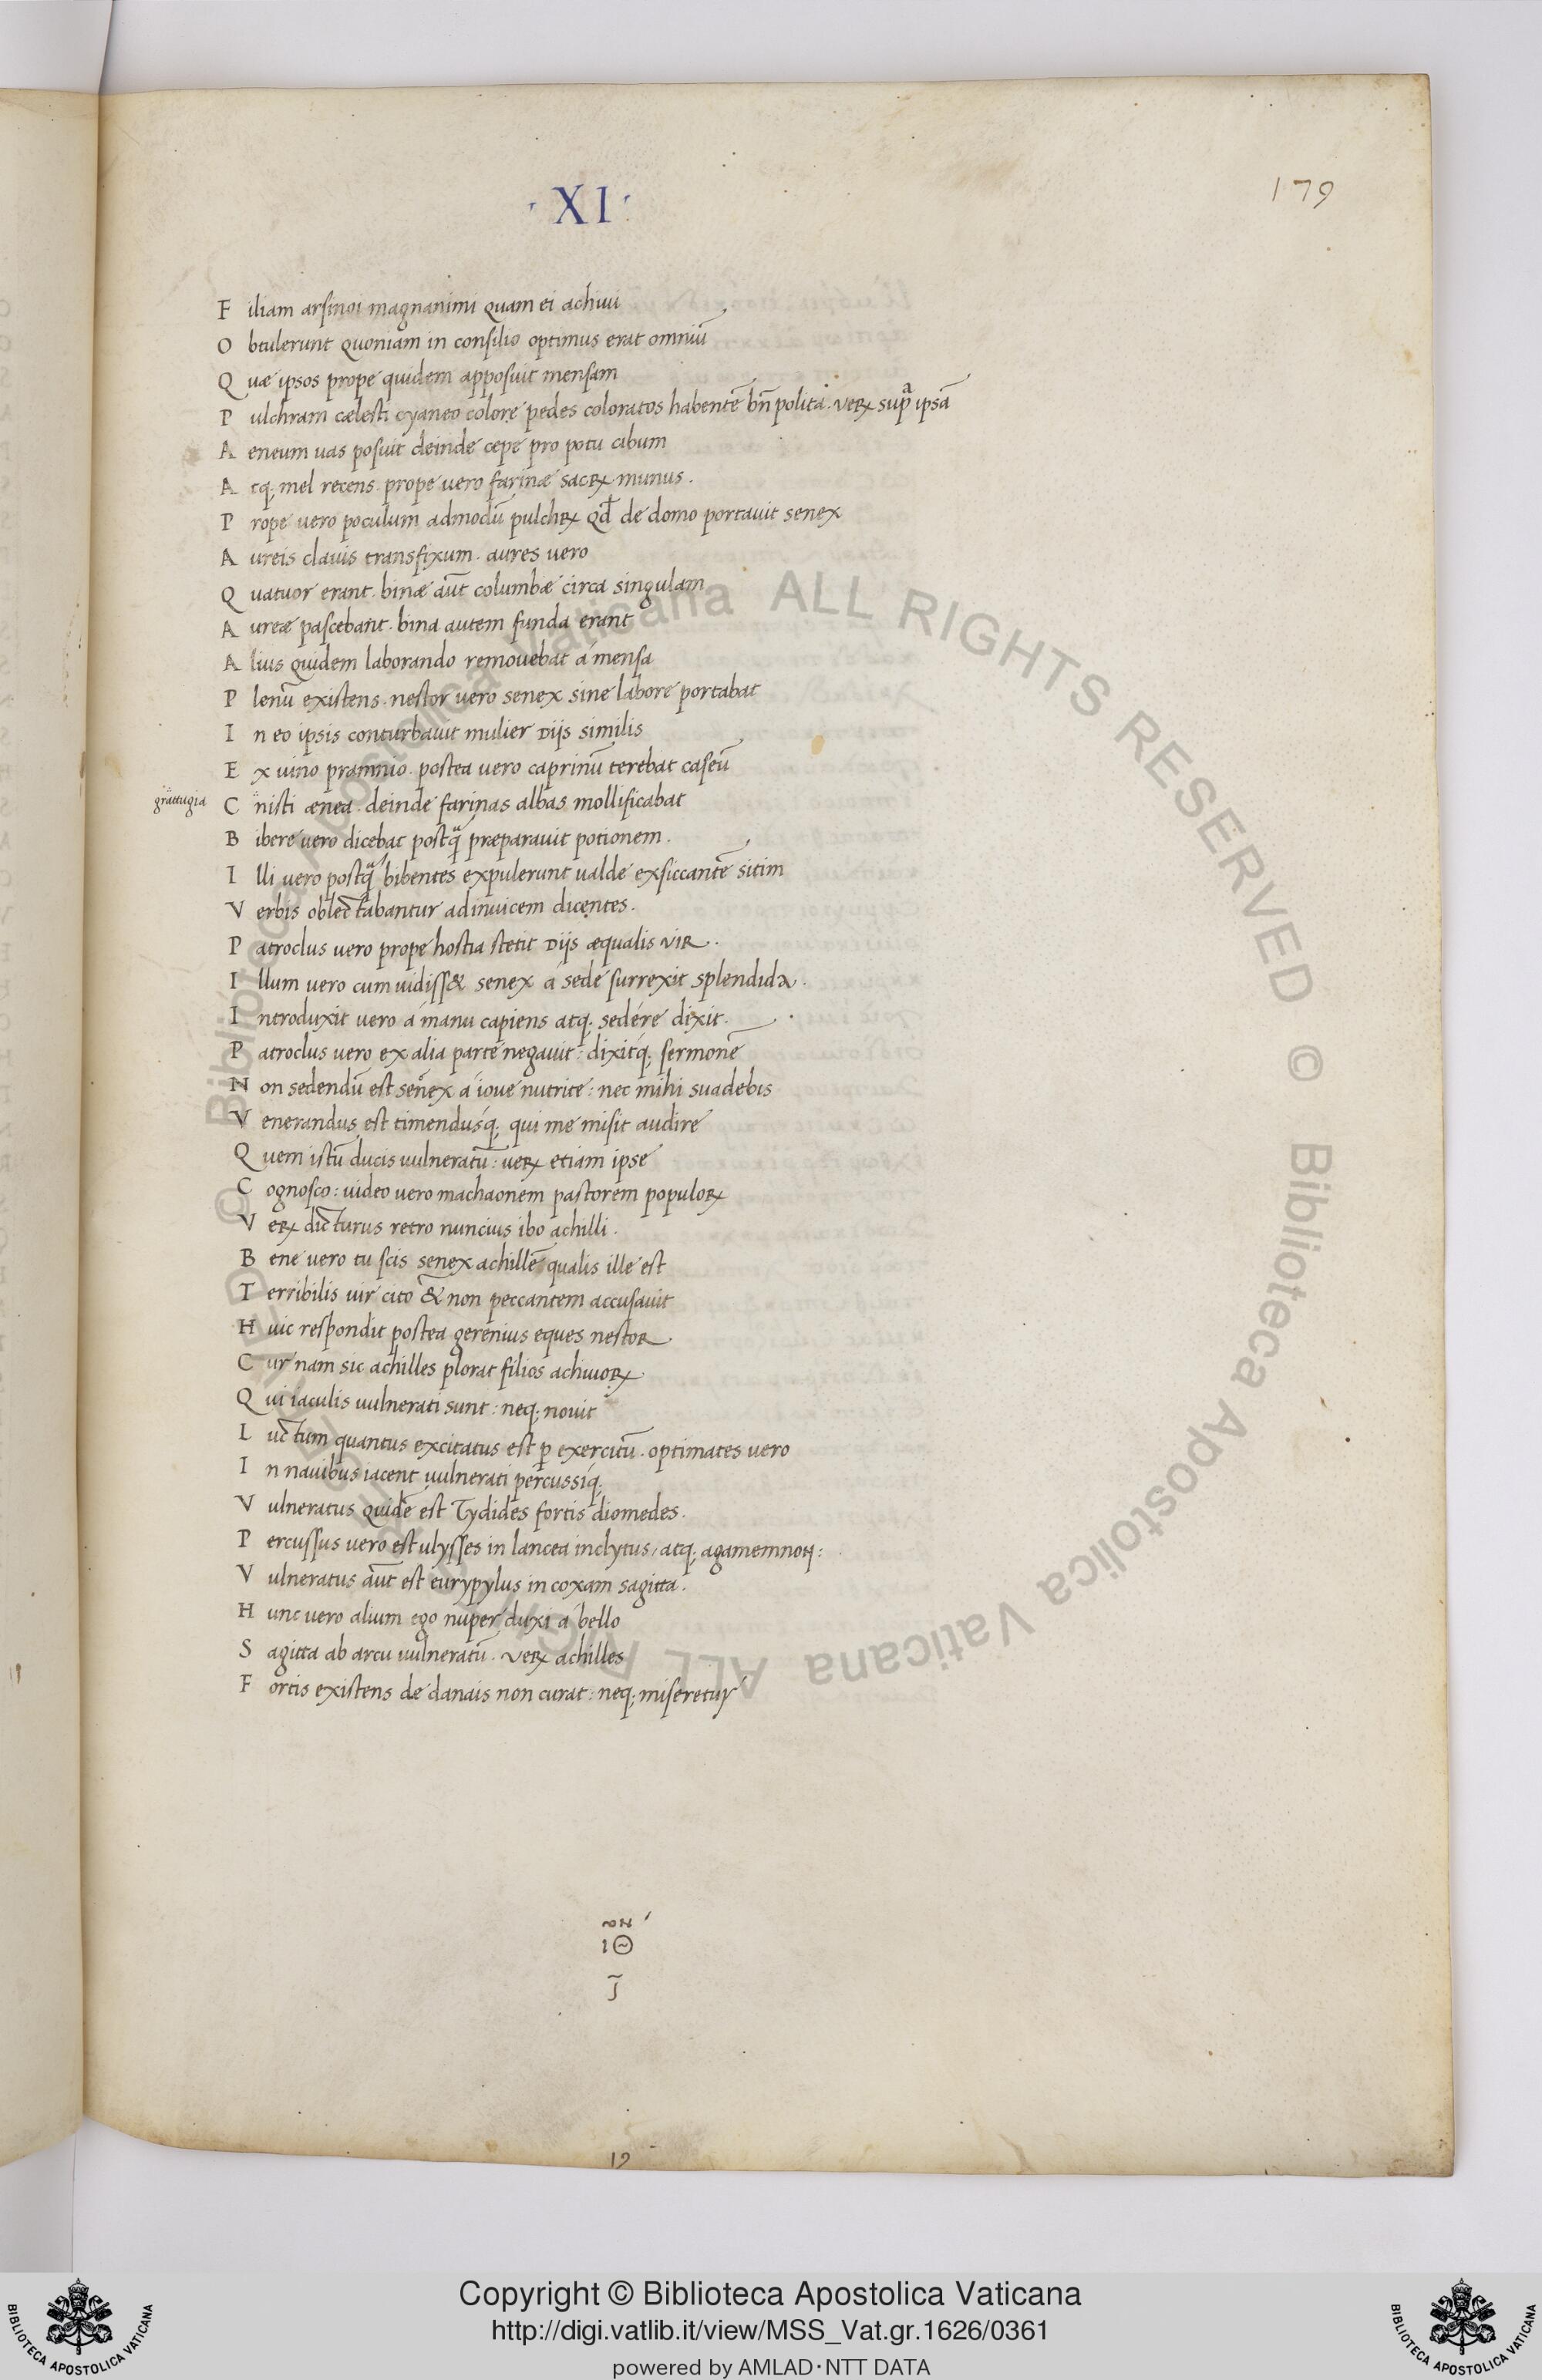 · XI ·
179
F iliam arsinoi magnanimi quam ei achiui
O btulerunt quoniam in consilio optimus erat omniū
Q uæ ipsos prope quidem apposuit mensam
P ulchram cælesti cyaneo colore pedes coloratos habentē bn̄ polita. veꝝ supͣ ipsā
A eneum uas posuit deinde cepe pro potu cibum
A tq; mel recens. prope uero farinæ sacꝝ munus.
P rope uero poculum admodū pulchꝝ qd̄ de domo portauit senex
A ureis clauis transfixum. aures uero
Q uatuor erant. binæ aūt columbæ circa singulam
A ureæ pascebant. bina autem funda erant
A lius quidem laborando remouebat á mensa
P lenū existens. nestor uero senex sine labore portabat
I n eo ipsis conturbauit mulier Dijs similis
E x uino pramnio. postea uero caprinū terebat caseū
grattugia
C nisti ænea. deinde farinas albas mollificabat
B ibere uero dicebat postqͣ præparauit potionem.
I lli uero postqͣ bibentes expulerunt ualde exsiccantē sitim
V erbis oblectabantur adinuicem dicentes.
P atroclus uero prope hostia stetit Dijs æqualis vir.
I llum uero cum uidiss& senex á sede surrexit splendida.
I ntroduxit uero á manu capiens atq; sedére dixit.
P atroclus uero ex alia parte negauit: dixitq́; sermonē
N on sedendū est senex á ioue nutrite: nec mihi suadebis
V enerandus est timendusq́; qui me misit audire
Q uem istū ducis uulneratū: ueꝝ etiam ipse
C ognosco: uideo uero machaonem pastorem populoꝝ
V eꝝ dicturus retro nuncius ibo achilli.
B ene uero tu scis senex achillē qualis ille est
T erribilis uir cito & non peccantem accusauit
H uic respondit postea gerenius eques nestor
C ur nam sic achilles plorat filios achiuoꝝ
Q ui iaculis uulnerati sunt: neq; nouit
L uctum quantus excitatus est ꝑ exercitū. optimates uero
I n nauibus iacent uulnerati percussiq́;
V ulneratus quidē est Tydides fortis diomedes.
P ercussus uero est ulysses in lancea inclytus, atq; agamemnon:
V ulneratus aūt est eurypylus in coxam sagitta.
H unc uero alium ego nuper duxi á bello
S agitta ab arcu uulneratū. veꝝ achilles
F ortis existens de danais non curat: neq; miseretur
19
Copyright © Biblioteca Apostolica Vaticana
http://digi.vatlib.it/view/MSS_Vat.gr.1626/0361
powered by AMLAD·NTT DATA
BIBLIOTECA APOSTOLICA VATICANA
BIBLIOTECA APOSTOLICA VATICANA
© Biblioteca Apostolica Vaticana ALL RIGHTS RESERVED © Biblioteca Apostolica Vaticana ALL RIGHTS RESERVED